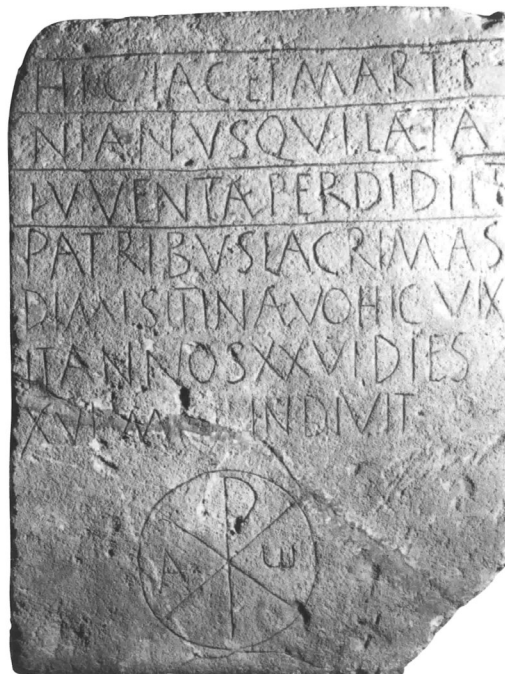 HIC IACET MARTI
NIANVS QVI LÆTA
IVVENTA PERDIDIT
PATRIBVS LACRIMAS
DIMISIT IN AVO HIC VIX
IT ANNOS XXVI DIES
XVI INDIVIT
A ⳩ ω